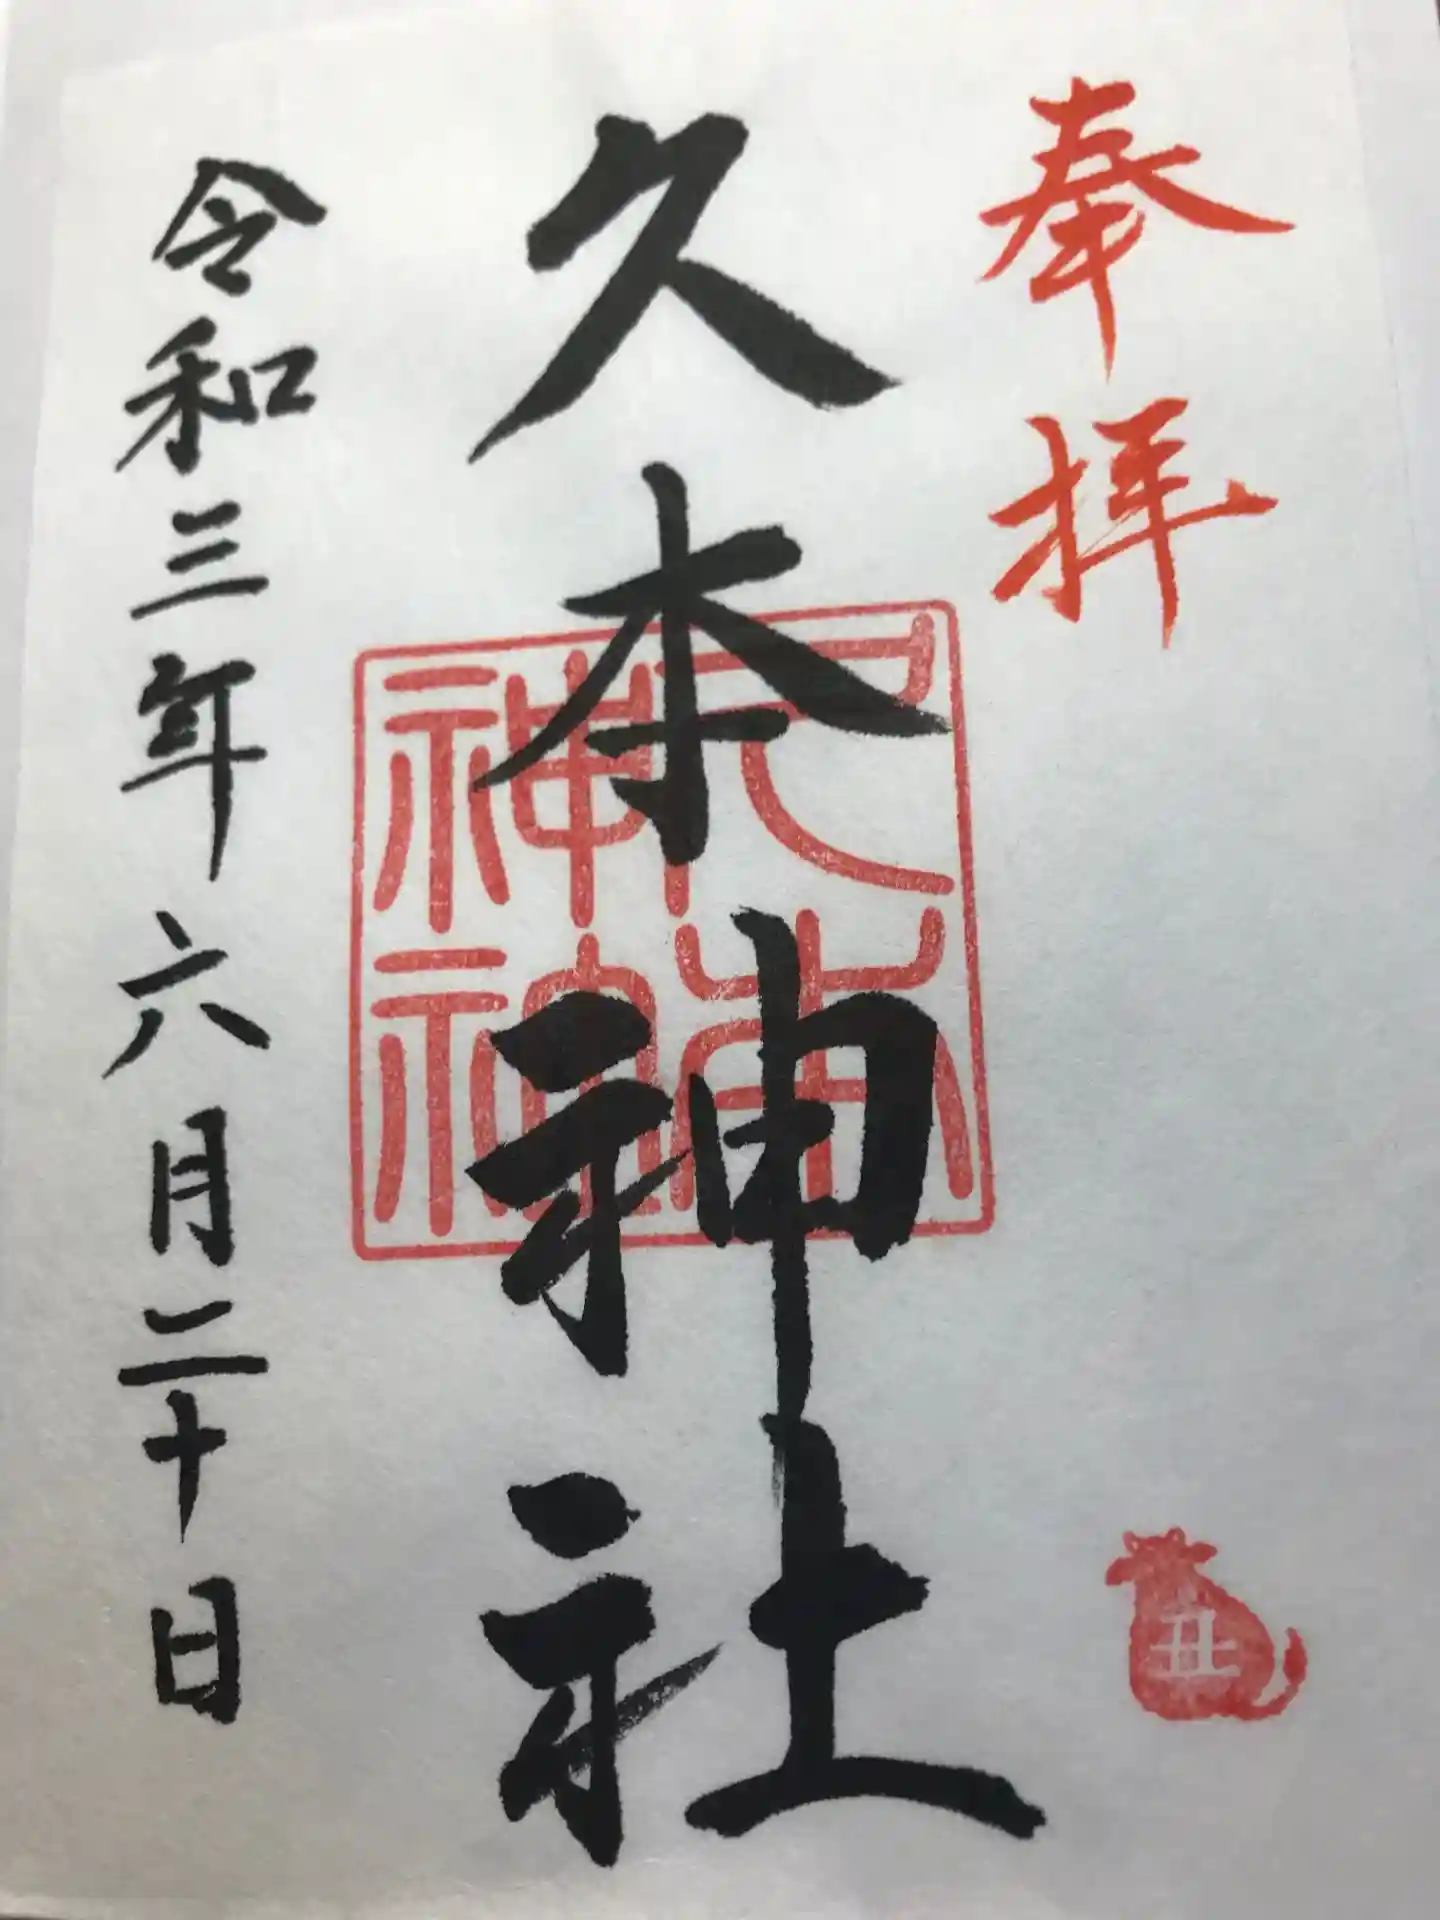 奉拝
久本神社
令和三年六月二十日
久本神社
丑